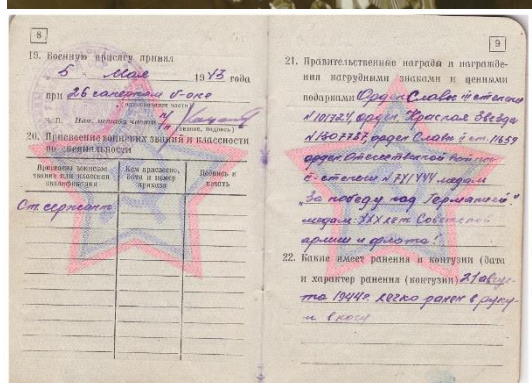 8
19. Военную присягу принял
5 Мая 1943 года
при 26 саперном б-оне
М.П. Нач. штаба части
(звание, подпись)
20. Присвоение воинских званий и классности
по специальности
Присвоены воинские звания или классная квалификация
Кем присвоено, дата и номер приказа
Подпись и печать
Ст. сержант
9
21. Правительственные награды и награжде-
ния нагрудными знаками и ценными
подарками Орден Славы степени
орден Красная Звезда
№1307737, орден Славы ст.
орден Отечественной войны
степени медаль
„За победу над Германией"
медаль XXX лет Советской
армии и флота!
22. Какие имеет ранения и контузии (дата
и характер ранения (контузии) 21 авгус-
та 1944г. легко ранен в руку
и в ногу